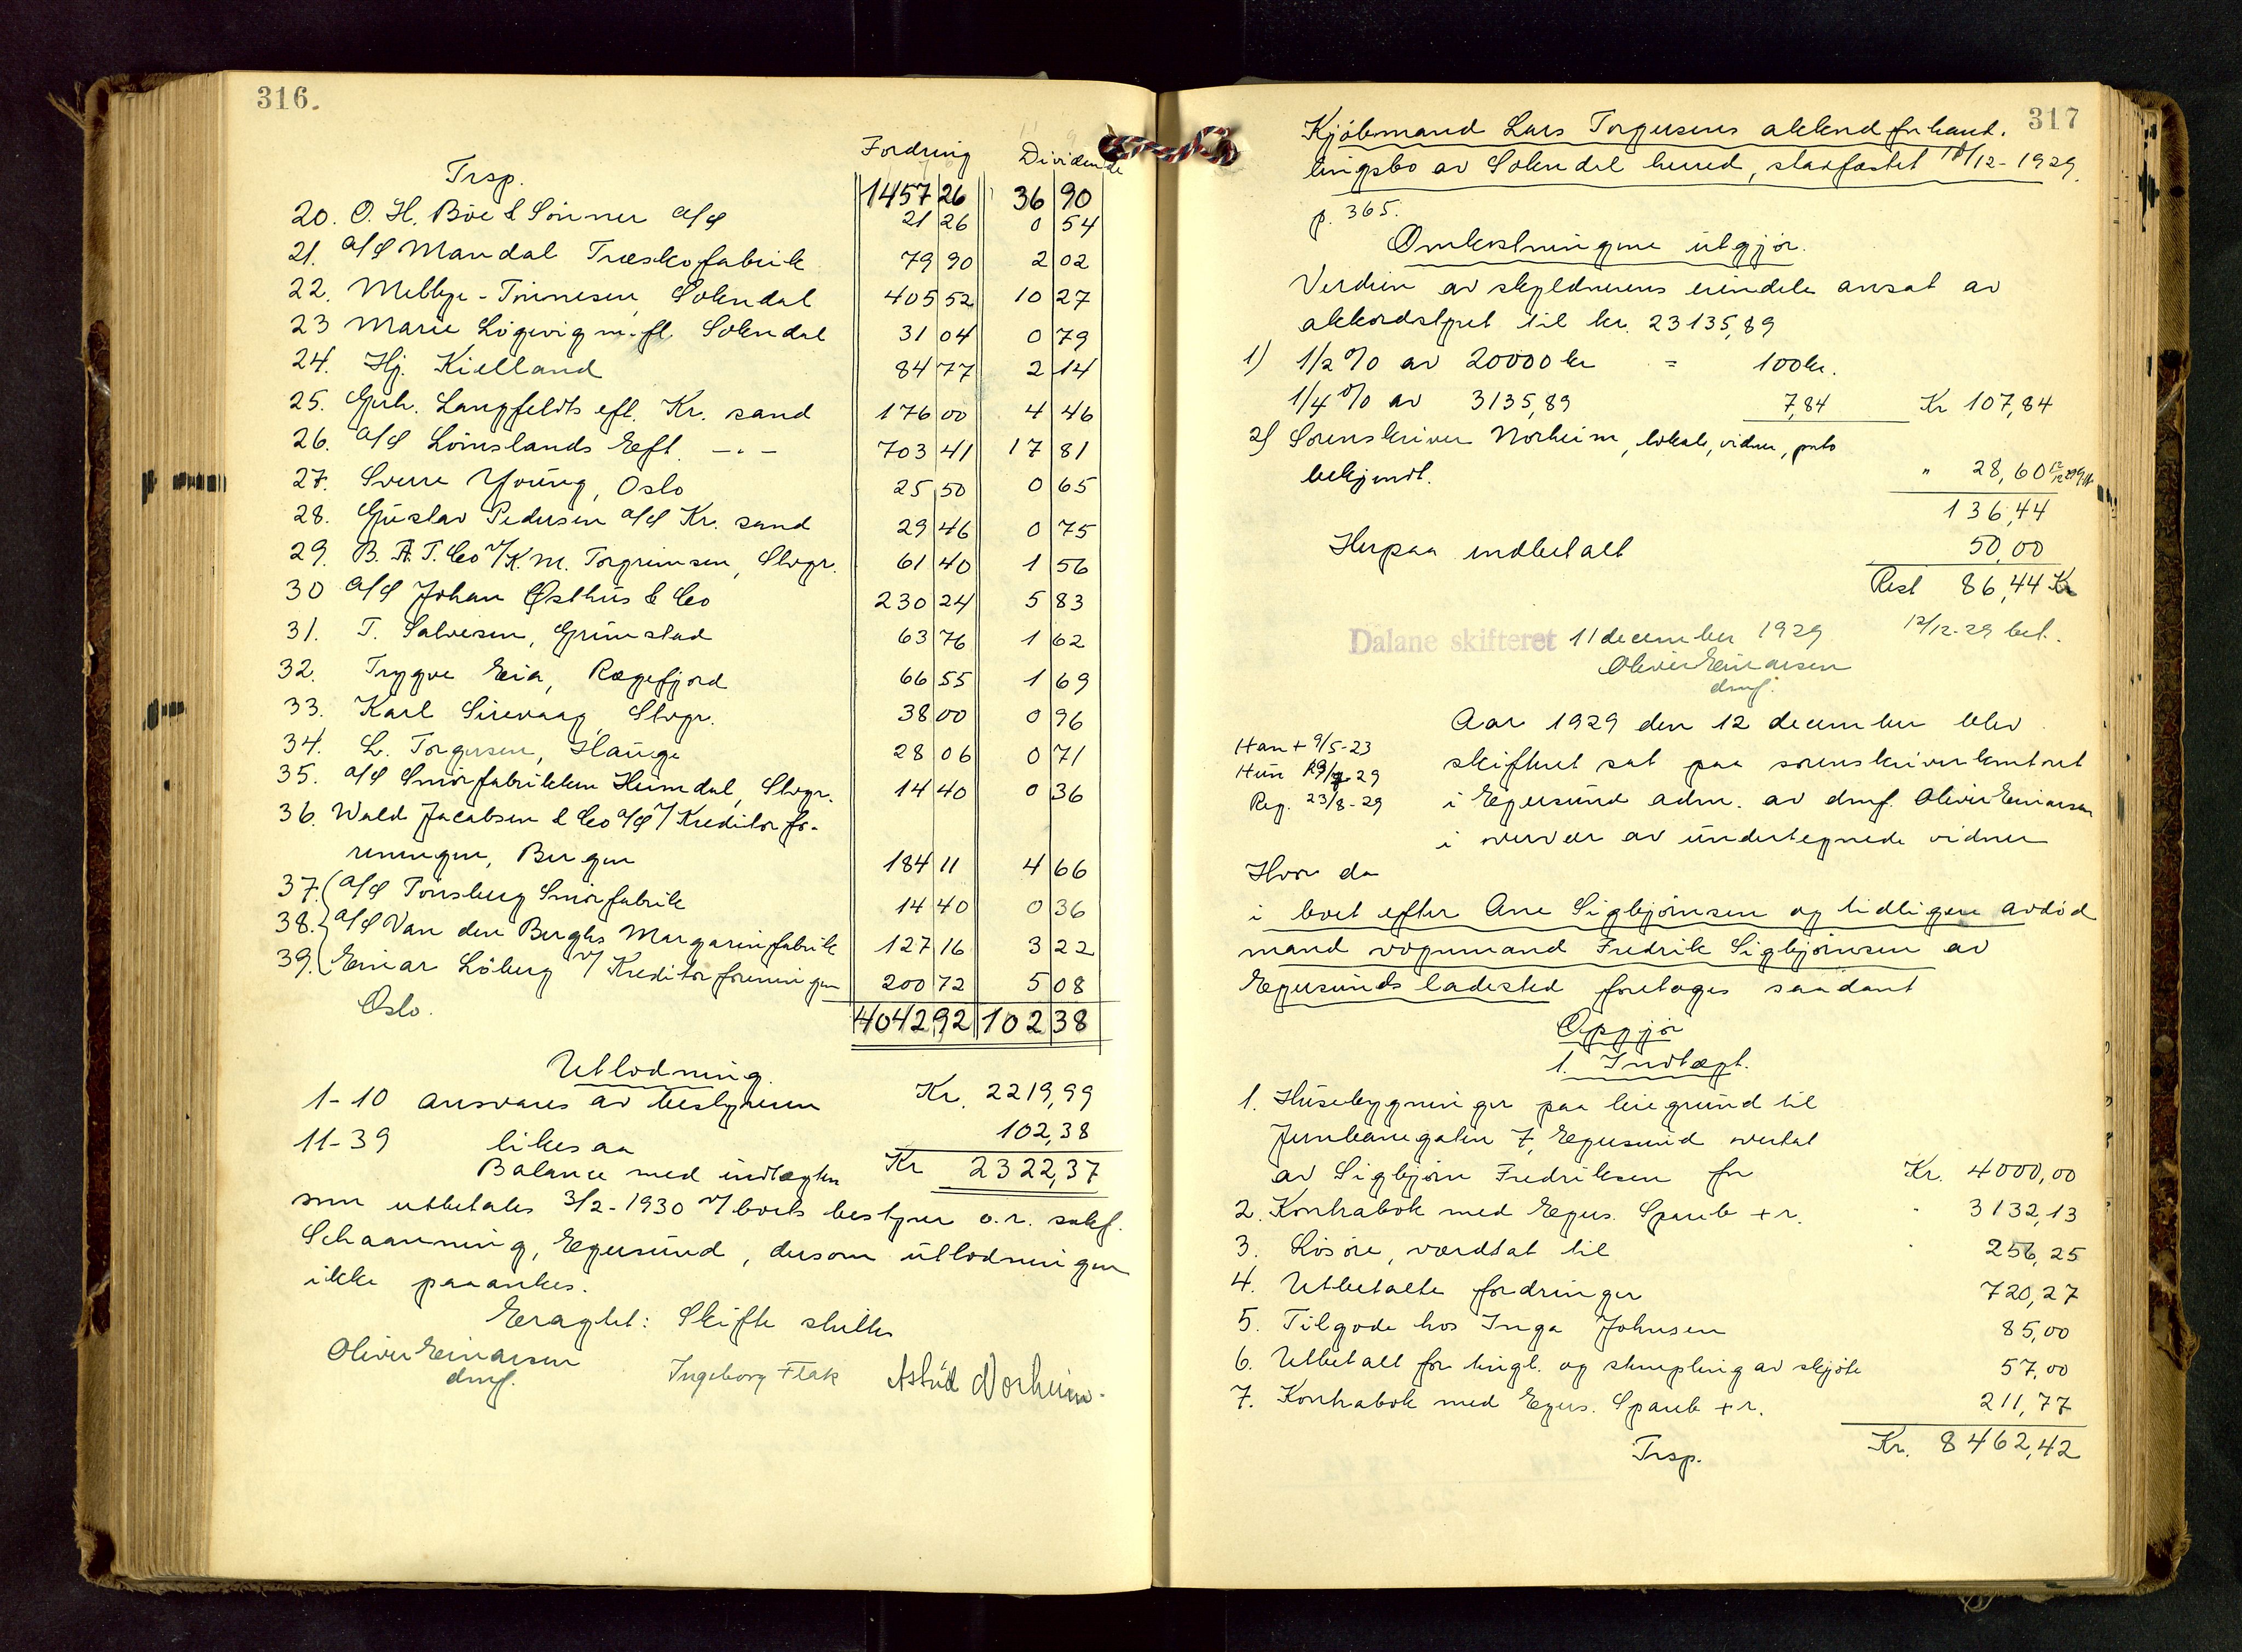 316.
Fordring Dividende
Trsp. 1457 26 36 90
20. O. H. Böe & Sönner a/s 21 26 0 54
21. a/s Mandal Træskofabrik 79 90 2 02
22. Melbye-Tönnesen, Sokndal 405 52 10 27
23 Marie Lögevig m. fl. Sokndal 31 04 0 79
24. Hj. Kielland 84 77 2 14
25. Gerh. Langfeldts eft. Kr. sand 176 00 4 46
26. a/s Lömslands Eeft. - " - 703 41 17 81
27. Sverre Young, Oslo 25 50 0 65
28. Gustav Pedersen a/s Kr. sand 29 46 0 75
29. B. A. T. Co v/ K. M. Torgrimsen, Stvgr. 61 40 1 56
30 a/s Johan Østhus & Co 230 24 5 83
31. T. Salvesen, Grimstad 63 76 1 62
32. Trygve Eia, Rægefjord 66 55 1 69
33. Karl Sirevaag, Stvgr. 38 00 0 96
34. L. Torgersen, Hauge 28 06 0 71
35. a/s Smörfabrikken Heimdal, Stvgr. 14 40 0 36
36. Wald Jacobsen & Co a/s v/ Kreditorfo-
reningen, Bergen 184 11 4 66
37. a/s Tönsberg Smörfabrik 14 40 0 36
38. a/s Van den Berghs Margarinfabrik 127 16 3 22
39. Einar Löberg v/ Kreditorforeningen 200 72 5 08
Oslo. 4042 92 102 38
Utlodning.
1-10 ansvares av bestyreren Kr. 2219,99
11-39 likesaa 102,38
Balance med indtægten Kr 2322,37
som utbetales 3/2-1930 v/ boets bestyrer o.r. sakf.
Schaanning, Egersund, dersom utlodningen
ikke paaankes.
Eragtet: Skifte sluttes
Oliver Einarsen
dmf.
Ingeborg Flak Astrid Norheim.
317
Kjöbmand Lars Torgersens akkordforhand-
lingsbo av Sokndal herred, stadfæstet 10/12-1929.
p. 365.
Omkostningene utgjör.
Verdien av skyldnerens eiendele ansat av
akkordstyret til kr. 23135,89
1) 1/2 % av 20000 kr = 100 kr.
1/4 % av 3135,89 7,84 Kr 107,84
2) Sorenskriver Norheim, lokale, vidner, porto
bekjendt. " 28,60 12/12-29
136,44
Herpaa indbetalt 50,00
Rest 86,44 Kr
Dalane skifteret 11 december 1929 12/12-29 bet.
Oliver Einarsen
dmf.
Aar 1929 den 12 december blev
Han + 9/5-23
skifteret sat paa sorenskriverkontoret
Hun 29
i Egersund adm. av dmf. Oliver Einarsen
Reg. 23/8-29
i overvær av undertegnede vidner
Hvor da
i boet efter Ane Sigbjörnsen og tidligere avdöd
mand vognmand Fredrik Sigbjörnsen av
Egersunds ladested foretoges saadant
Opgjör
1. Indtægt.
1. Husebygninger paa leiegrund til
Jernbanegaten 7, Egersund overtat
av Sigbjörn Fredriksen for Kr. 4000,00
2. Kontrabok med Egers. Spareb + r. " 3132,13
3. Lösöre, værdsat til " 256,25
4. Utbetalte fordringer 720,27
5. Tilgode hos Inga Johnsen 85,00
6. Utbetalt for tingl. og stempling av skjöte 57,00
7. Kontrabok med Egers. Spareb + r. 211,77
Trsp. Kr. 8462,42